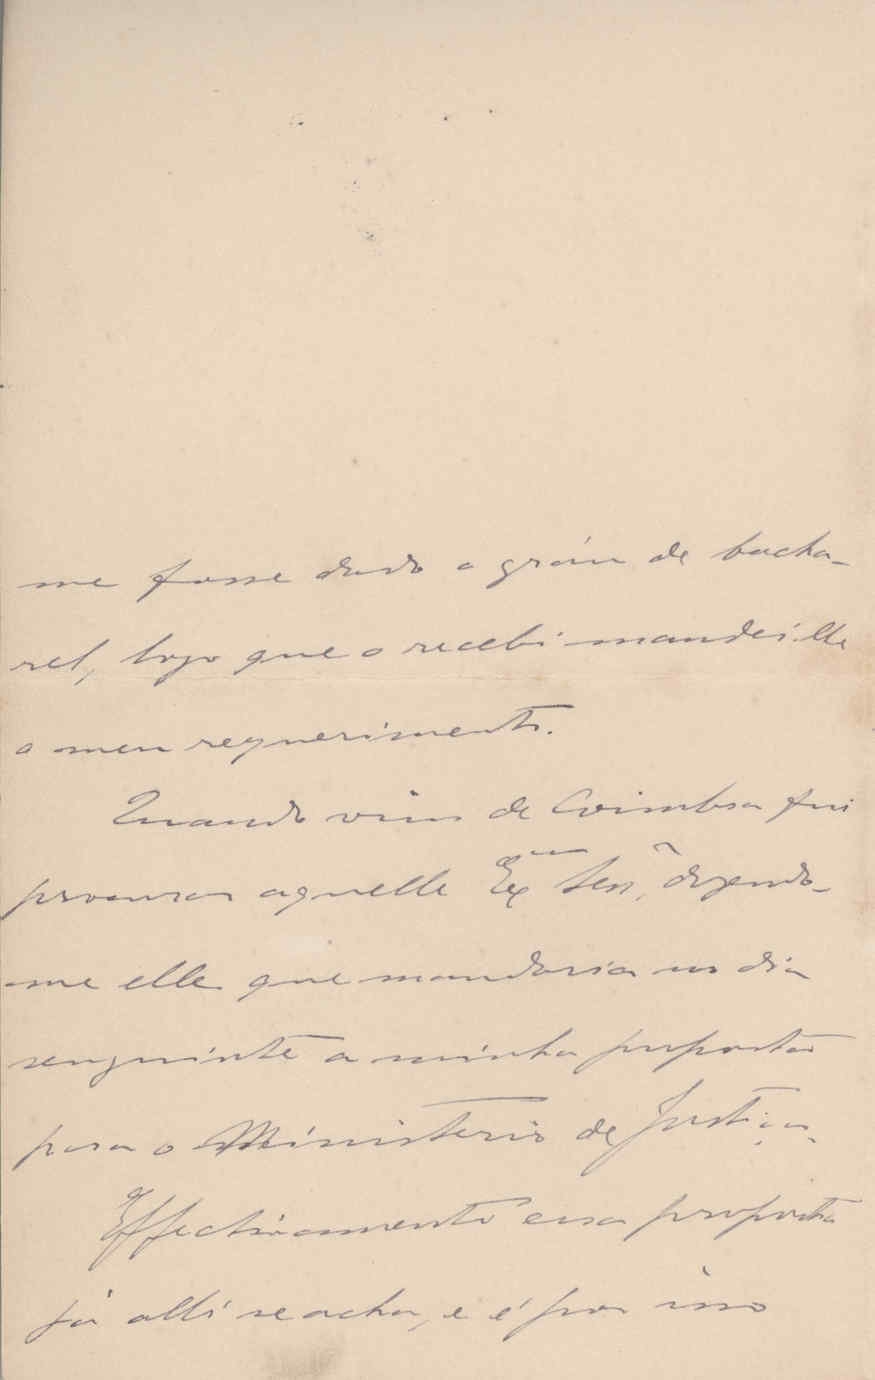 me fosse dado o gráu de bacha-
rel, logo que o recebi mandei-lhe
o meu requerimento.
Quando vim de Coimbra fui
procurar aquelle Ex.mo Sen.r, dizendo-
-me elle que mandaria no dia
seuguinte a minha proposta
para o Ministerio de Justiça.
Effectivamente essa proposta
já alli se acha, e é por isso